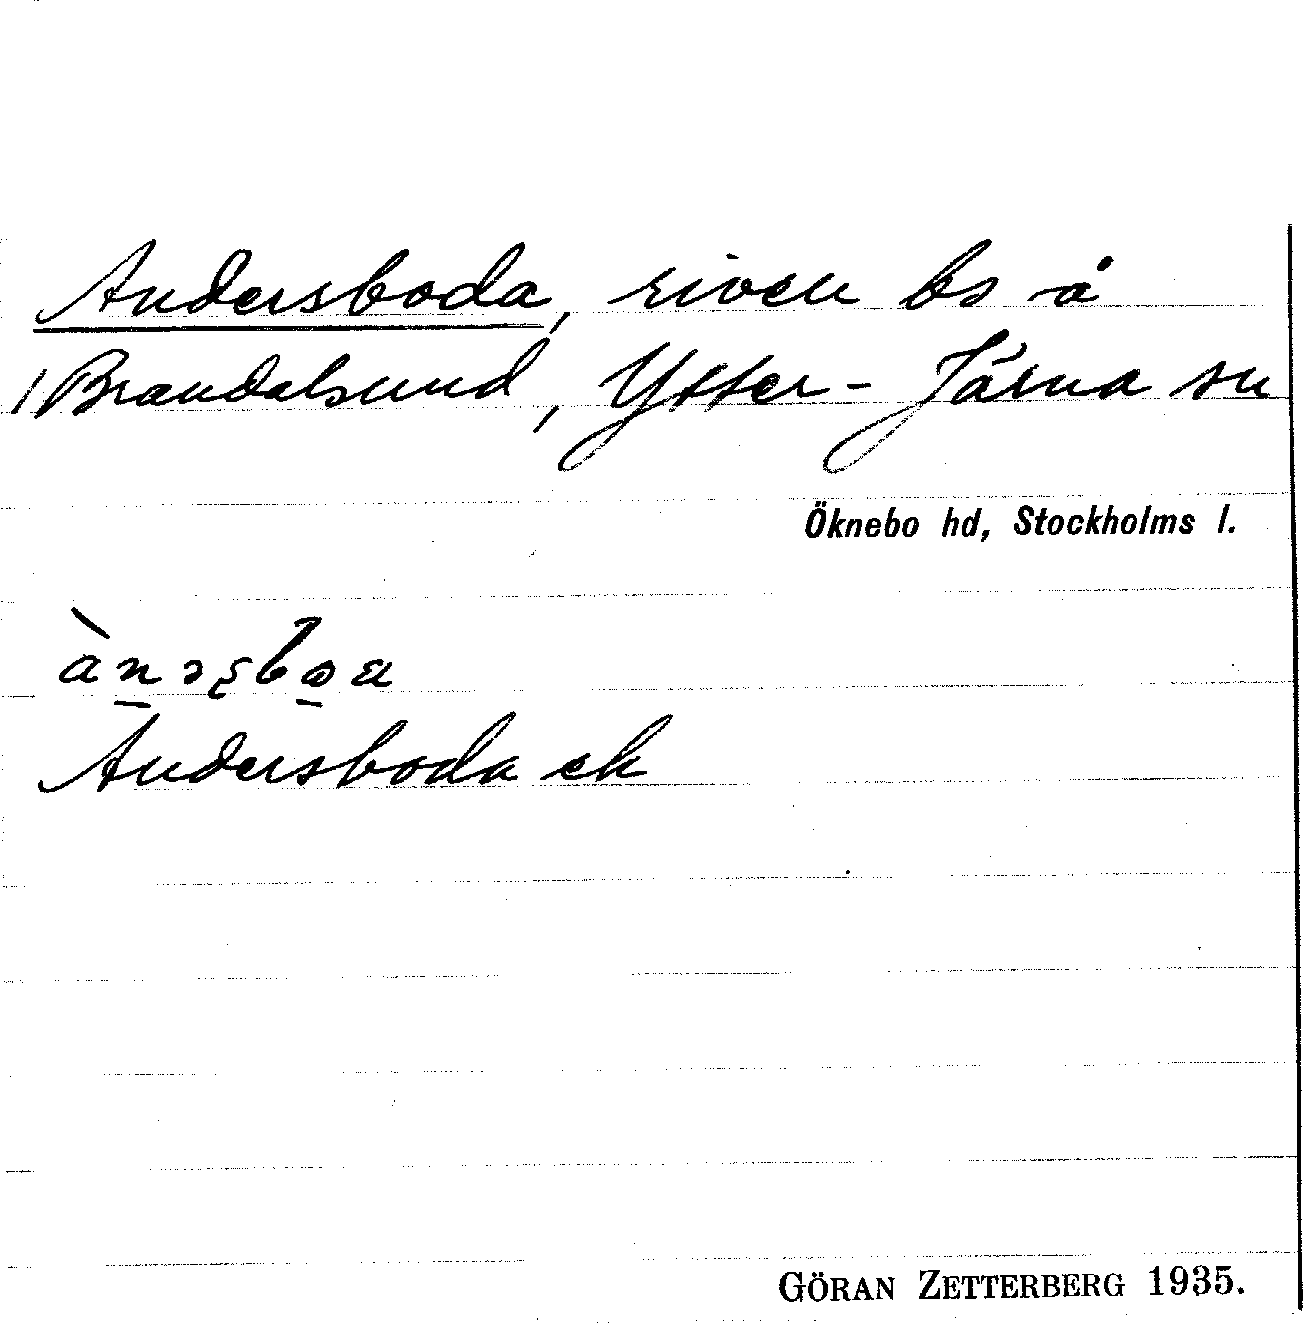 Andersboda, riven bs å
/Brandalsund, Ytter-Järna sn
Öknebo hd, Stockholms l.
Andersboda ek
GÖRAN ZETTERBERG 1935.